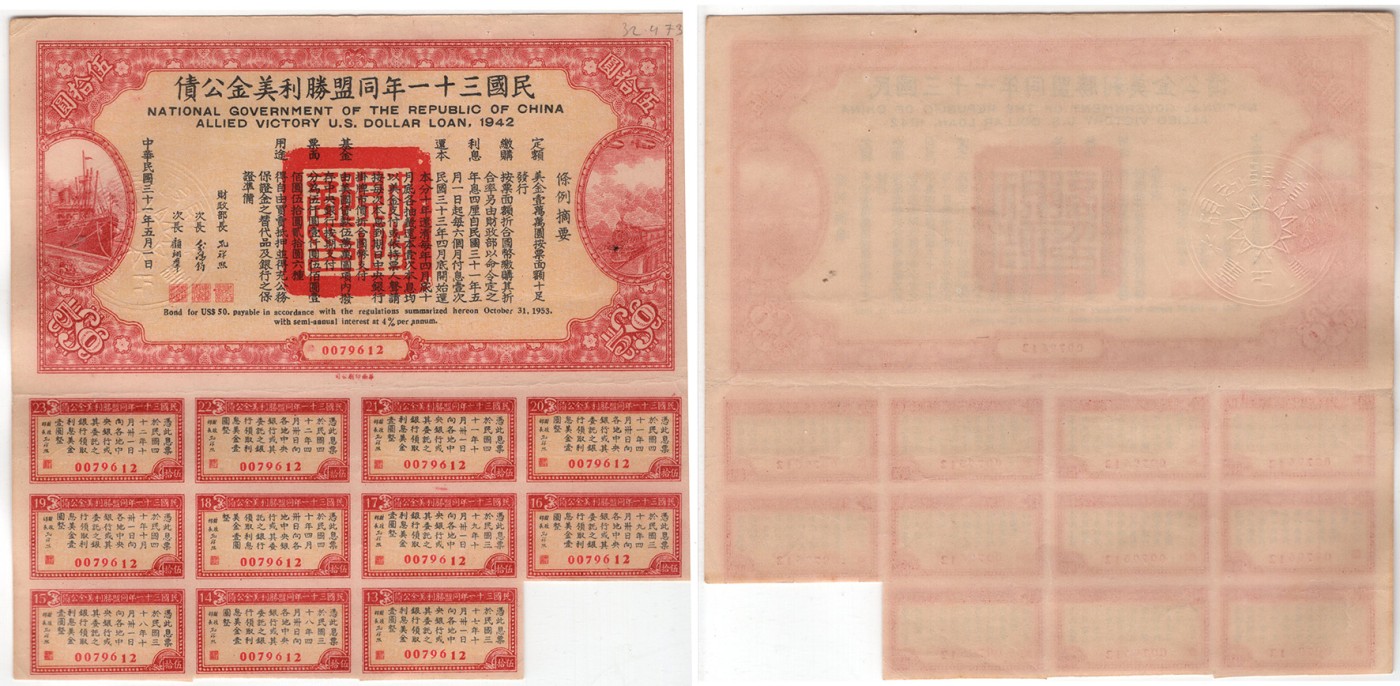 32.473
民國三十一年同盟勝利美金公債
NATIONAL GOVERNMENT OF THE REPUBLIC OF CHINA
ALLIED VICTORY U.S. DOLLAR LOAN, 1942
伍拾圓
伍拾圓
條例摘要
定額 美金壹萬萬圓按票面額十足
發行
繳購 按票面額折合國幣繳購其折
合率另由財政部以命令定之
利息 年息四釐自民國三十一年五
月一日起每六個月付息壹次
還本 民國三十三年四月底開始還
本分十年還清每年四月底十
月底各抽籤還本壹次本息均
以美金支付或依持票人聲請
按每次本息到期日中央銀行
掛牌市價折合國幣支付
基金 由美國貸款伍萬萬圓項內撥
存中央銀行按期支付
票面 分為伍仟圓壹仟圓伍佰圓壹
佰圓伍拾圓貳拾圓六種
用途 得自由買賣抵押並得充公務
保證金之替代品及銀行之保
證準備
財政部長 孔祥熙
次長 俞鴻鈞
次長 顧翊羣
中華民國三十一年五月一日
Bond for US$ 50. payable in accordance with the regulations summarized hereon October 31, 1953.
with semi-annual interest at 4% per annum.
$50
$50
0079612
23
民國三十一年同盟勝利美金公債
憑此息票
於民國四
十二年十
月卅一日
向各地中
央銀行或
其委託之
銀行領取
利息美金
壹圓整
0079612
伍拾
22
民國三十一年同盟勝利美金公債
憑此息票
於民國四
十二年四
月卅日向
各地中央
銀行或其
委託之銀
行領取利
息美金壹
圓整
0079612
伍拾
21
民國三十一年同盟勝利美金公債
憑此息票
於民國四
十一年十
月卅一日
向各地中
央銀行或
其委託之
銀行領取
利息美金
壹圓整
0079612
伍拾
20
民國三十一年同盟勝利美金公債
憑此息票
於民國四
十一年四
月卅日向
各地中央
銀行或其
委託之銀
行領取利
息美金壹
圓整
0079612
伍拾
19
民國三十一年同盟勝利美金公債
憑此息票
於民國四
十年十月
卅一日向
各地中央
銀行或其
委託之銀
行領取利
息美金壹
圓整
0079612
伍拾
18
民國三十一年同盟勝利美金公債
憑此息票
於民國四
十年四月
卅日向各
地中央銀
行或其委
託之銀行
領取利息
美金壹圓
整
0079612
伍拾
17
民國三十一年同盟勝利美金公債
憑此息票
於民國三
十九年十
月卅一日
向各地中
央銀行或
其委託之
銀行領取
利息美金
壹圓整
0079612
伍拾
16
民國三十一年同盟勝利美金公債
憑此息票
於民國三
十九年四
月卅日向
各地中央
銀行或其
委託之銀
行領取利
息美金壹
圓整
0079612
伍拾
15
民國三十一年同盟勝利美金公債
憑此息票
於民國三
十八年十
月卅一日
向各地中
央銀行或
其委託之
銀行領取
利息美金
壹圓整
0079612
伍拾
14
民國三十一年同盟勝利美金公債
憑此息票
於民國三
十八年四
月卅日向
各地中央
銀行或其
委託之銀
行領取利
息美金壹
圓整
0079612
伍拾
13
民國三十一年同盟勝利美金公債
憑此息票
於民國三
十七年十
月卅一日
向各地中
央銀行或
其委託之
銀行領取
利息美金
壹圓整
0079612
伍拾